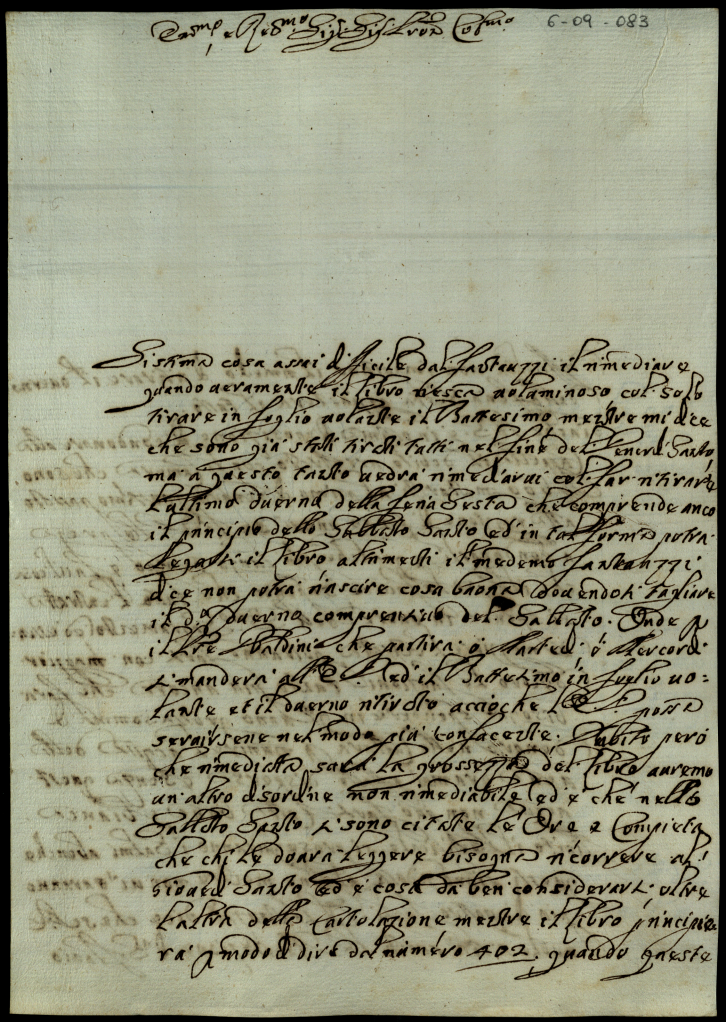 6-09-083
Ill.mo e Re.mo Sig.r Sig.r Pron Col.mo
Si stima cosa assai dificile dal Fantauzzi il rimediare
quando veramente il libro riesca voluminoso col solo
tirare in foglio volante il Battesimo mentre mi dice
che sono già stati tirati tutti nel fine del Venerdi Santo
ma a questo tanto vedrà rimediarvi col far ritirare
l'ultimo duerno della feria sesta che comprende anco
il principio dello Sabbato Santo ed in tal forma potrà
legarsi il libro altrimenti il medemo Fantauzzi
dice non potrà riuscire cosa buona dovendosi tagliare
il d.o duerno comprensivo del Sabbato. Onde p
il Pre Baldini che partirà ò Martedi ò Mercordi
si manderà all'E. V. ed il Battesimo in foglio vo=
lante et il duerno ritirato accioche l'E. V. possa
servirsene nel modo più confacente. Dubito però
che rimediata sarà la grossezza del libro avremo
un altro disordine non rimediabile ed è che nello
Sabbato Santo si sono citate le Ore e Compieta
che chi le dovrà leggere bisogna ricorrere al
Giovedi Santo ed è cosa da ben considerarsi oltre
l'altra della cartolazione mentre il libro principie
rà p modo di dire dal numero 402. quando queste